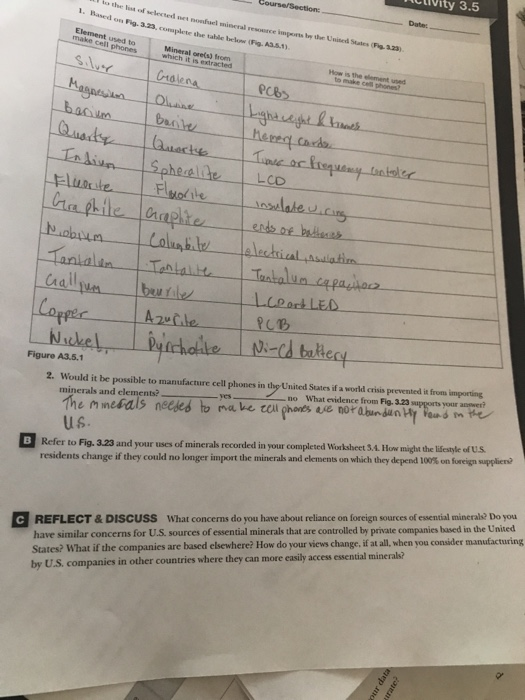 Course/Section:
Activity 3.5
to the list of selected net nonfuel mineral resource imports by the United States (Fig. 3.23).
Date:
1. Based on Fig. 3.23, complete the table below (Fig. A3.5.1).
Element used to make cell phones
Mineral ore(s) from which it is extracted
How is the element used to make cell phones?
Silver Galena PCBs
Magnesium Olivine Lightweight & frames
Barium Barite Memory cards
Quartz Quartz Timer or frequency controler
Indium Spheralite LCD
Fluorite Fluorite insulate wiring
Graphite Graphite ends of batteries
Niobium Columbite electrical insulation
Tantalum Tantalite Tantalum capacitors
Gallium bauxite LCD and LED
Copper Azurite PCB
Nickel Pyrrhotite Ni-Cd battery
Figure A3.5.1
2. Would it be possible to manufacture cell phones in the United States if a world crisis prevented it from importing
minerals and elements? yes no What evidence from Fig. 3.23 supports your answer?
The minerals needed to make cell phones are not abundantly found in the
US.
B Refer to Fig. 3.23 and your uses of minerals recorded in your completed Worksheet 3.4. How might the lifestyle of U.S.
residents change if they could no longer import the minerals and elements on which they depend 100% on foreign suppliers?
C REFLECT & DISCUSS What concerns do you have about reliance on foreign sources of essential minerals? Do you
have similar concerns for U.S. sources of essential minerals that are controlled by private companies based in the United
States? What if the companies are based elsewhere? How do your views change, if at all, when you consider manufacturing
by U.S. companies in other countries where they can more easily access essential minerals?
our data